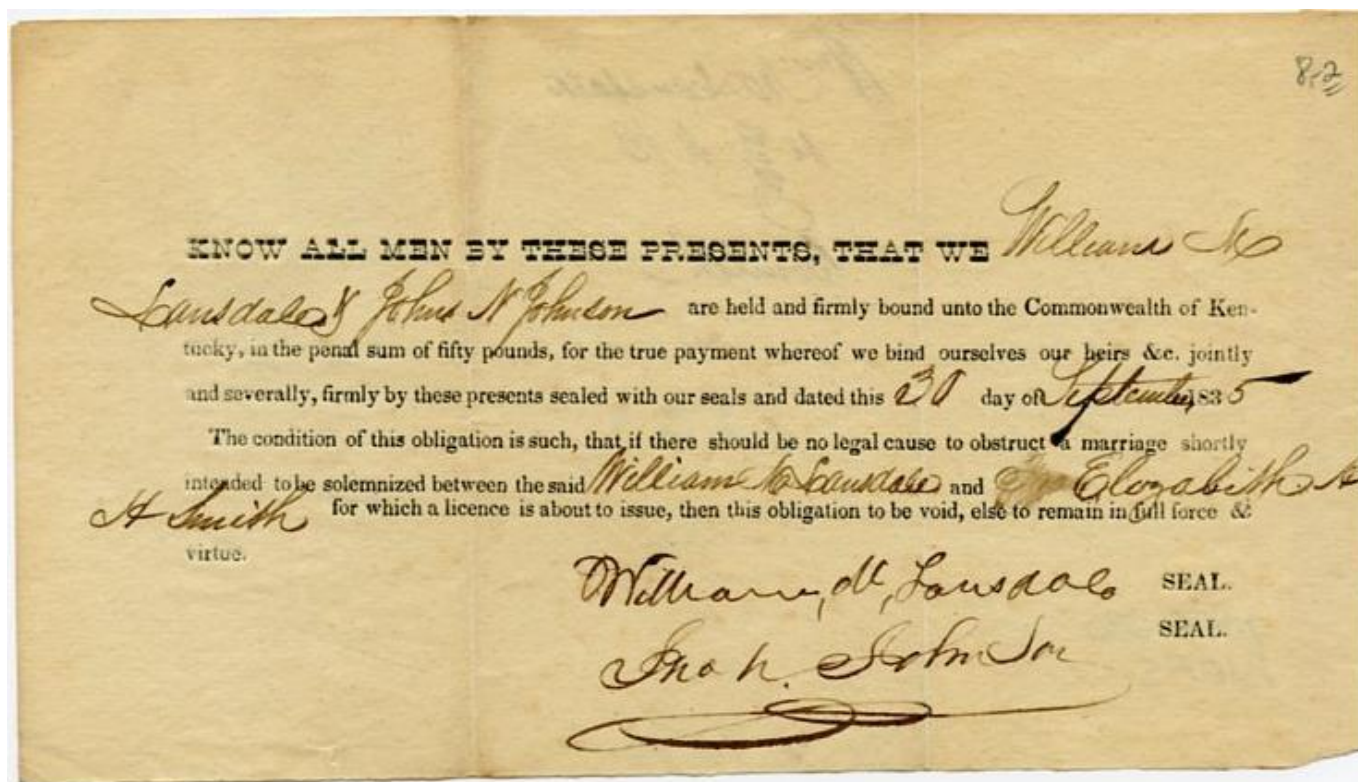 8-2
KNOW ALL MEN BY THESE PRESENTS, THAT WE William M
Lansdale & John N Johnson are held and firmly bound unto the Commonwealth of Ken-
tucky, in the penal sum of fifty pounds, for the true payment whereof we bind ourselves our heirs &c. jointly
and severally, firmly by these presents sealed with our seals and dated this 30 day of September, 1835
The condition of this obligation is such, that if there should be no legal cause to obstruct a marriage shortly
intended to be solemnized between the said William M Lansdale and Elozabith A
H Smith for which a licence is about to issue, then this obligation to be void, else to remain in full force &
virtue.
William, M, Lansdale SEAL.
Jno N. Johnson SEAL.